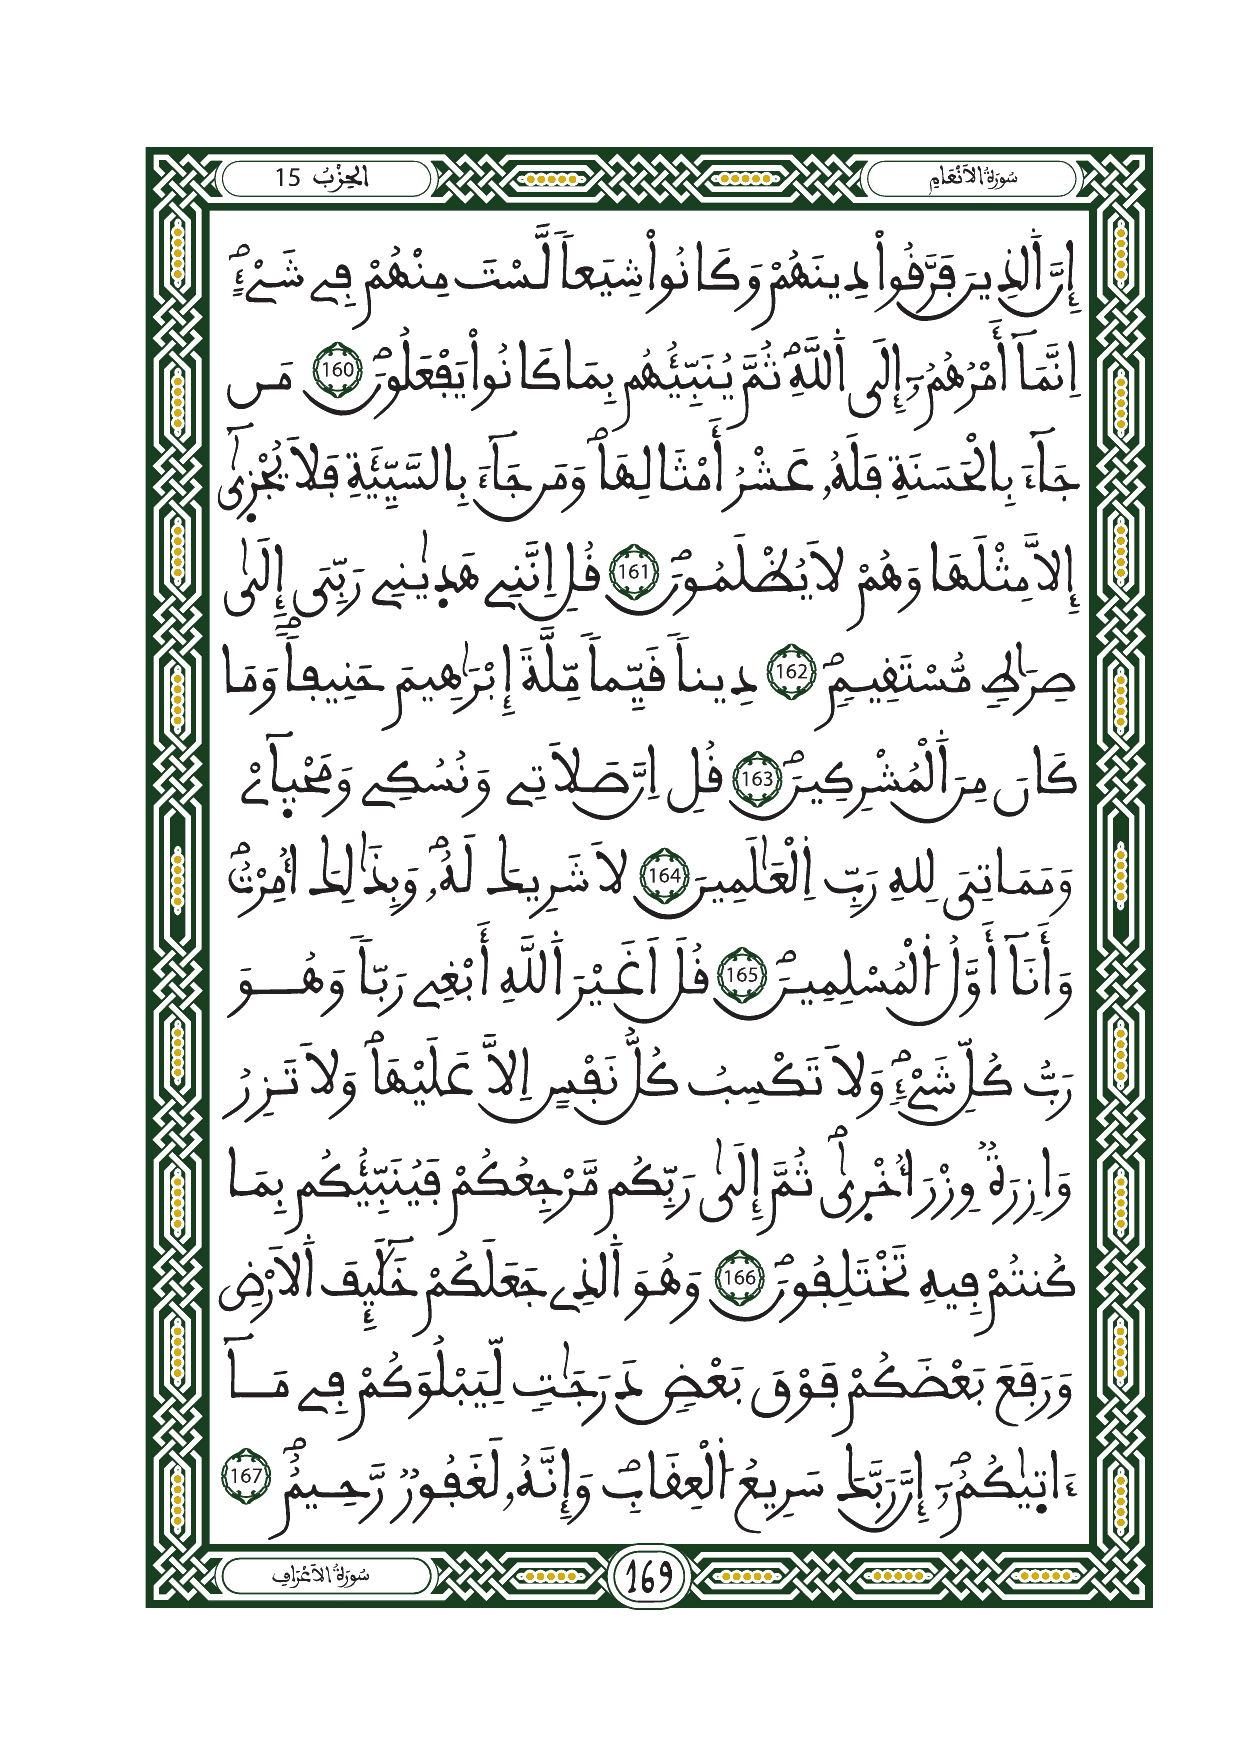 سُورَةُ الَانْعَامِ
الحِزْبُ 15
إِنَّ اَ۬لذِينَ فَرَّقُواْ دِينَهُمْ وَكَانُواْ شِيَعاٗ لَّسْتَ مِنْهُمْ فِے شَےْءٍۖ
اِنَّمَآ أَمْرُهُمُۥٓ إِلَى اَ۬للَّهِۖ ثُمَّ يُنَبِّئُهُم بِمَا كَانُواْ يَفْعَلُونَۖ 160 مَن
جَآءَ بِالْحَسَنَةِ فَلَهُۥ عَشْرُ أَمْثَالِهَاۖ وَمَن جَآءَ بِالسَّيِّئَةِ فَلَا يُجْزٜىٰٓ
إِلَّا مِثْلَهَا وَهُمْ لَا يُظْلَمُونَۖ 161 قُلِ اِنَّنِے هَدٜيٰنِے رَبِّيَ إِلَىٰ
صِرَٰطٖ مُّسْتَقِيمٖۖ 162 دِيناٗ قَيِّماٗ مِّلَّةَ إِبْرَٰهِيمَ حَنِيفاٗۖ وَمَا
كَانَ مِنَ اَ۬لْمُشْرِكِينَۖ 163 قُلِ اِنَّ صَلَاتِے وَنُسُكِے وَمَحْي۪آےْ
وَمَمَاتِيَ لِلهِ رَبِّ اِ۬لْعَٰلَمِينَ 164 لَا شَرِيكَ لَهُۥۖ وَبِذَٰلِكَ أُمِرْتُۖ
وَأَنَآ أَوَّلُ اُ۬لْمُسْلِمِينَۖ 165 قُلَ اَغَيْرَ اَ۬للَّهِ أَبْغِے رَبّاٗ وَهُوَ
رَبُّ كُلِّ شَےْءٖۖ وَلَا تَكْسِبُ كُلُّ نَفْسٍ اِلَّا عَلَيْهَاۖ وَلَا تَزِرُ
وَازِرَةٞ وِزْرَ أُخْر۪ىٰۖ ثُمَّ إِلَىٰ رَبِّكُم مَّرْجِعُكُمْ فَيُنَبِّئُكُم بِمَا
كُنتُمْ فِيهِ تَخْتَلِفُونَۖ 166 وَهُوَ اَ۬لذِے جَعَلَكُمْ خَلَٰٓئِفَ اَ۬لَارْضِ
وَرَفَعَ بَعْضَكُمْ فَوْقَ بَعْضٖ دَرَجَٰتٖ لِّيَبْلُوَكُمْ فِے مَآ
ءَات۪يٰكُمُۥٓۖ إِنَّ رَبَّكَ سَرِيعُ اُ۬لْعِقَابِۖ وَإِنَّهُۥ لَغَفُورٞ رَّحِيمٞۖ 167
169
سُورَةُ الَاعْرَافِ